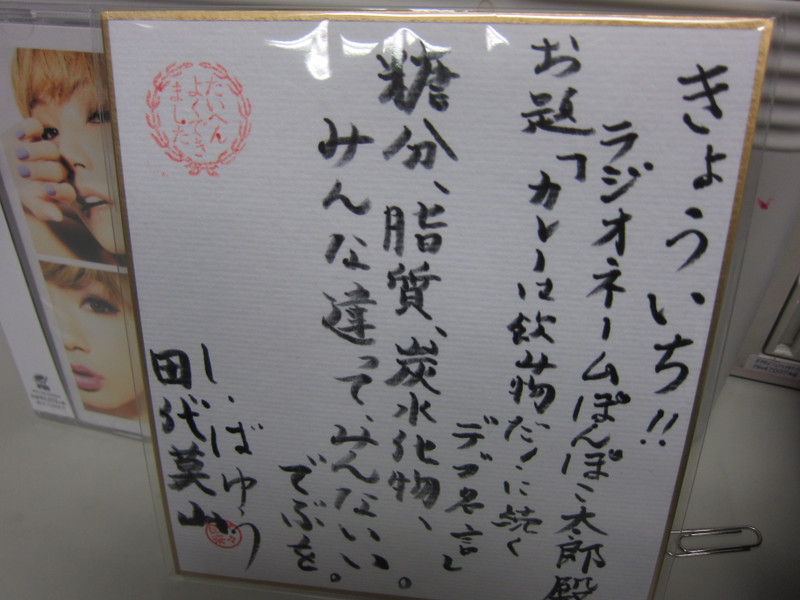 きょういち!!
ラジオネームぽんぽこ太郎殿
お題「カレーは飲み物だ」に続く
デブ名言」
糖分、脂質、炭水化物、
みんな違って、みんないい。
でぶを。
しばゆう
田代莫山
たいへん
よくでき
ました